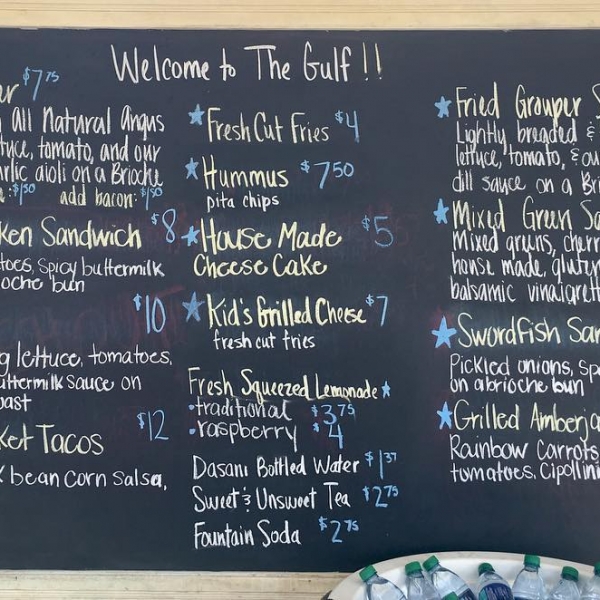 Welcome to The Gulf!!
$7.75
all Natural Angus
tomato, and our
aioli on a Brioche
$1.50 add bacon: $1.50
Sandwich $8
spicy buttermilk
bun
$10
lettuce, tomatoes,
sauce on
$12
Tacos
bean corn salsa,
Fresh Cut Fries $4
Hummus $7.50
pita chips
House Made $5
Cheese Cake
Kid's Grilled Cheese $7
fresh cut fries
Fresh Squeezed Lemonade
• traditional $3.75
• raspberry $4
Dasani Bottled Water $1.37
Sweet & Unsweet Tea $2.75
Fountain Soda $2.75
Fried Grouper
Lightly breaded &
lettuce, tomato, &
dill sauce on a
Mixed Green
Mixed greens,
house made,
balsamic
Swordfish
Pickled onions,
on a brioche bun
Grilled
Rainbow Carrots,
tomatoes,